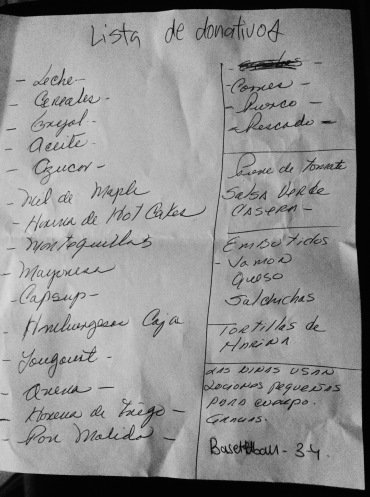 Lista de donativos
- Leche -
- Cereales -
- Frijol -
- Aceite -
- Azucar -
- Miel de Maple
- Harina de Hot Cakes
- Mantequillas
- Mayonesa
- Capsup -
- Hamburgesas Caja
- Yougourt -
- Avena -
- Harina de Trigo -
- Pan Molido -
- Carnes -
- Puerco -
- Pescado -
Pure de tomate
Salsa Verde
CASERA -
EMBUTIDOS
- Jamon
Queso
Salchichas
TORTILLAS de
HARINA
LAS NIÑAS USAN
pequeñas
PARA CUERPO.
GRACIAS.
Basketball - 3-4.